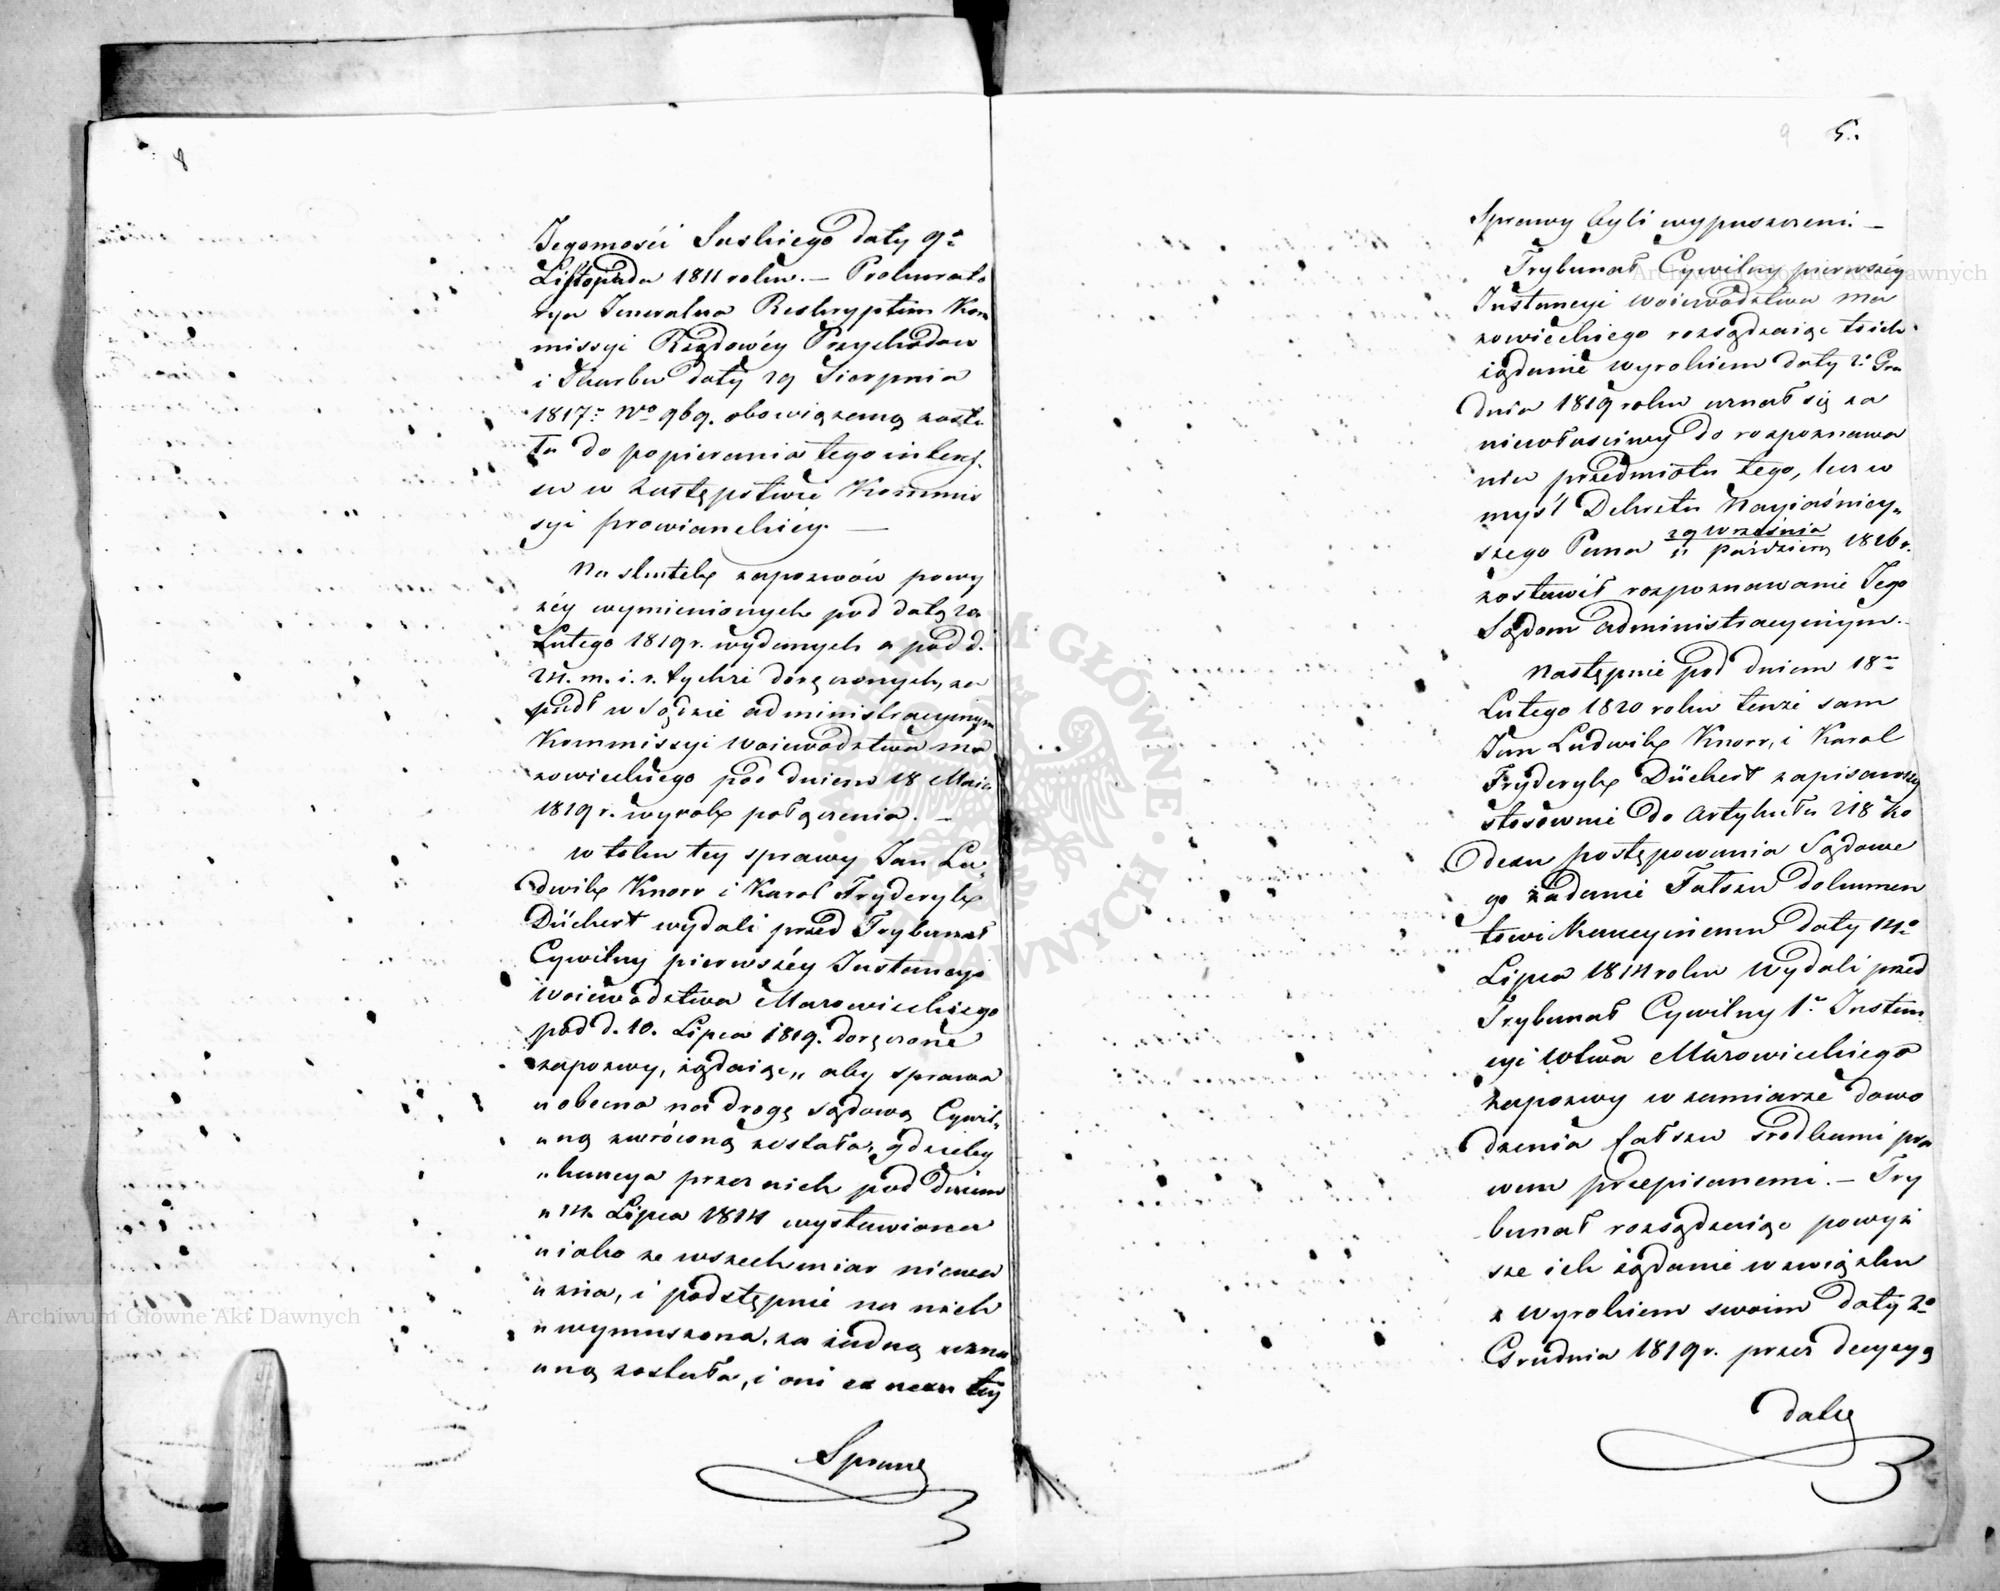 8
Jegomości Saskiego daty 9º
Listopada 1811 roku. — Prokurato
rya Jeneralna Reskryptem Kom
missyi Rządowéy Przychodow
i Skarbu daty 29 Sierpnia
1817: No 969. obowiązaną zosta
ła do popierania tego interes
su w Zastępstwie Kommis
syi prowianckiey. —
Na skutek zapozwów powy
żéy wymienionych pod datą 20
Lutego 1819 r. wydanych a pod d.
24. m. i. r. tychże doręczonych, za
padł w Sądzie administracyinym
Kommissyi Woiewództwa Ma
zowieckiego pod dniem 18 Maia
1819 r. wyrok połączenia. —
W toku tey sprawy Jan Lu
dwik Knorr i Karol Fryderyk
Dückert wydali przed Trybunał
Cywilny pierwszéy Instancyi
Woiewództwa Mazowieckiego
pod d. 10. Lipca 1819. doręczone
zapozwy, żądaiąc „ aby sprawa
„ obecna na drogę sądową Cywil„
„ ną zwróconą została, gdzieby
„ kaucya przez nich pod dniem
„ 14 Lipca 1814 wystawiona
„ iako ze wszech miar nieważ
„ żna, i podstępnie na nich
„ wymuszona, za żadną uzna
„ ną została, i oni ex nexu téy
Sprawy
9 5.
Sprawy byli wypuszczeni. —
Trybunał Cywilny pierwszéy
Instancyi Woiewództwa Ma
zowieckiego rozsądzaiąc to ich
żądanie wyrokiem daty 2º Gru
dnia 1819 roku uznał się za
niewłaściwy do rozpoznawa
nia przedmiotu tego, lecz w
myśl Dekretu Nayiaśniey„
szego Pana 29 Września
11 Paździer 1816 r.
zostawił rozpoznawanie Jego
Sądom administracyinym. —
Następnie pod dniem 18m
Lutego 1820 roku tenże sam
Jan Ludwik Knorr, i Karol
Fryderyk Dückert zapisawszy
stosownie do Artykułu 218 Ko
dexu postępowania Sądowe
go żądanie Fałszu dokumen
towi Kaucyinemu daty 14º
Lipca 1814 roku Wydali przed
Trybunał Cywilny 1º Instan
cyi Wtwa Mazowieckiego
Zapozwy w zamiarze dowo
dzenia fałszu srodkami pra
wem przepisanemi. — Try
bunał rozsądzaiąc powyż
sze ich żądanie w związku
z wyrokiem swoim daty 2º
Grudnia 1819 r. przez decyzyą
daty
Archiwum Główne Akt Dawnych
Archiwum Główne Akt Dawnych
ARCHIWUM GŁÓWNE AKT DAWNYCH